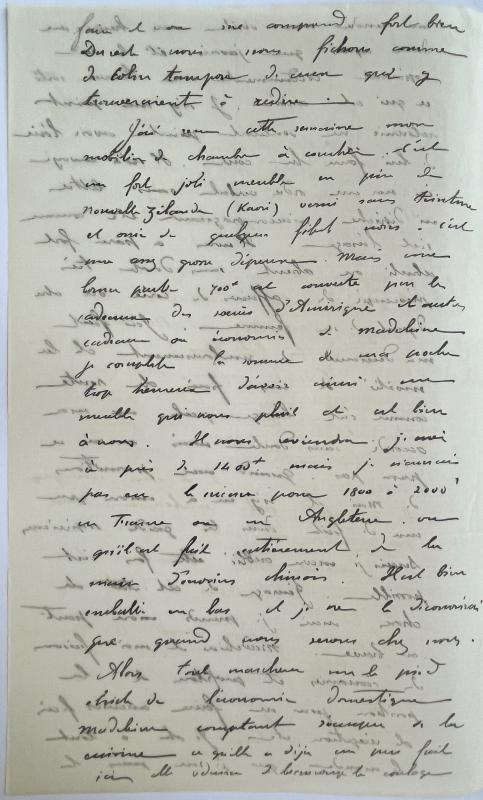 faire et on me comprend fort bien
Du reste nous nous fichons comme
de colin tampon de ceux qui y
trouveraient à redire.
J'ai reçu cette semaine mon
mobilier de chambre à coucher. C'est
un fort joli meuble en pin de
nouvelle Zélande (Kaori) verni sans teinture
et orné de quelques filets noirs. C'est
une assez grosse dépense. Mais une
bonne partie 700f est couverte par les
cadeaux des soeurs d'Amérique et autres
cadeaux ou économies de Madeleine
je complète la somme de ma poche
trop heureux d'avoir ainsi un
meuble qui nous plait et est bien
à nous. Il nous reviendra j'ai
à près de 1400f mais je n'aurais
pas eu le mieux pour 1800 à 2000f
en France ou en Angleterre vu
qu'il est fait entièrement de la
main d'ouvriers chinois. Il est bien
emballé en bas et je ne le découvrirai
que quand nous serons chez nous.
Alors tout marchera sur le pied
strict de l'économie domestique
Madeleine comptant s'occuper de la
cuisine ce qu'elle a déjà un peu fait
ici elle de beaucoup le coulage